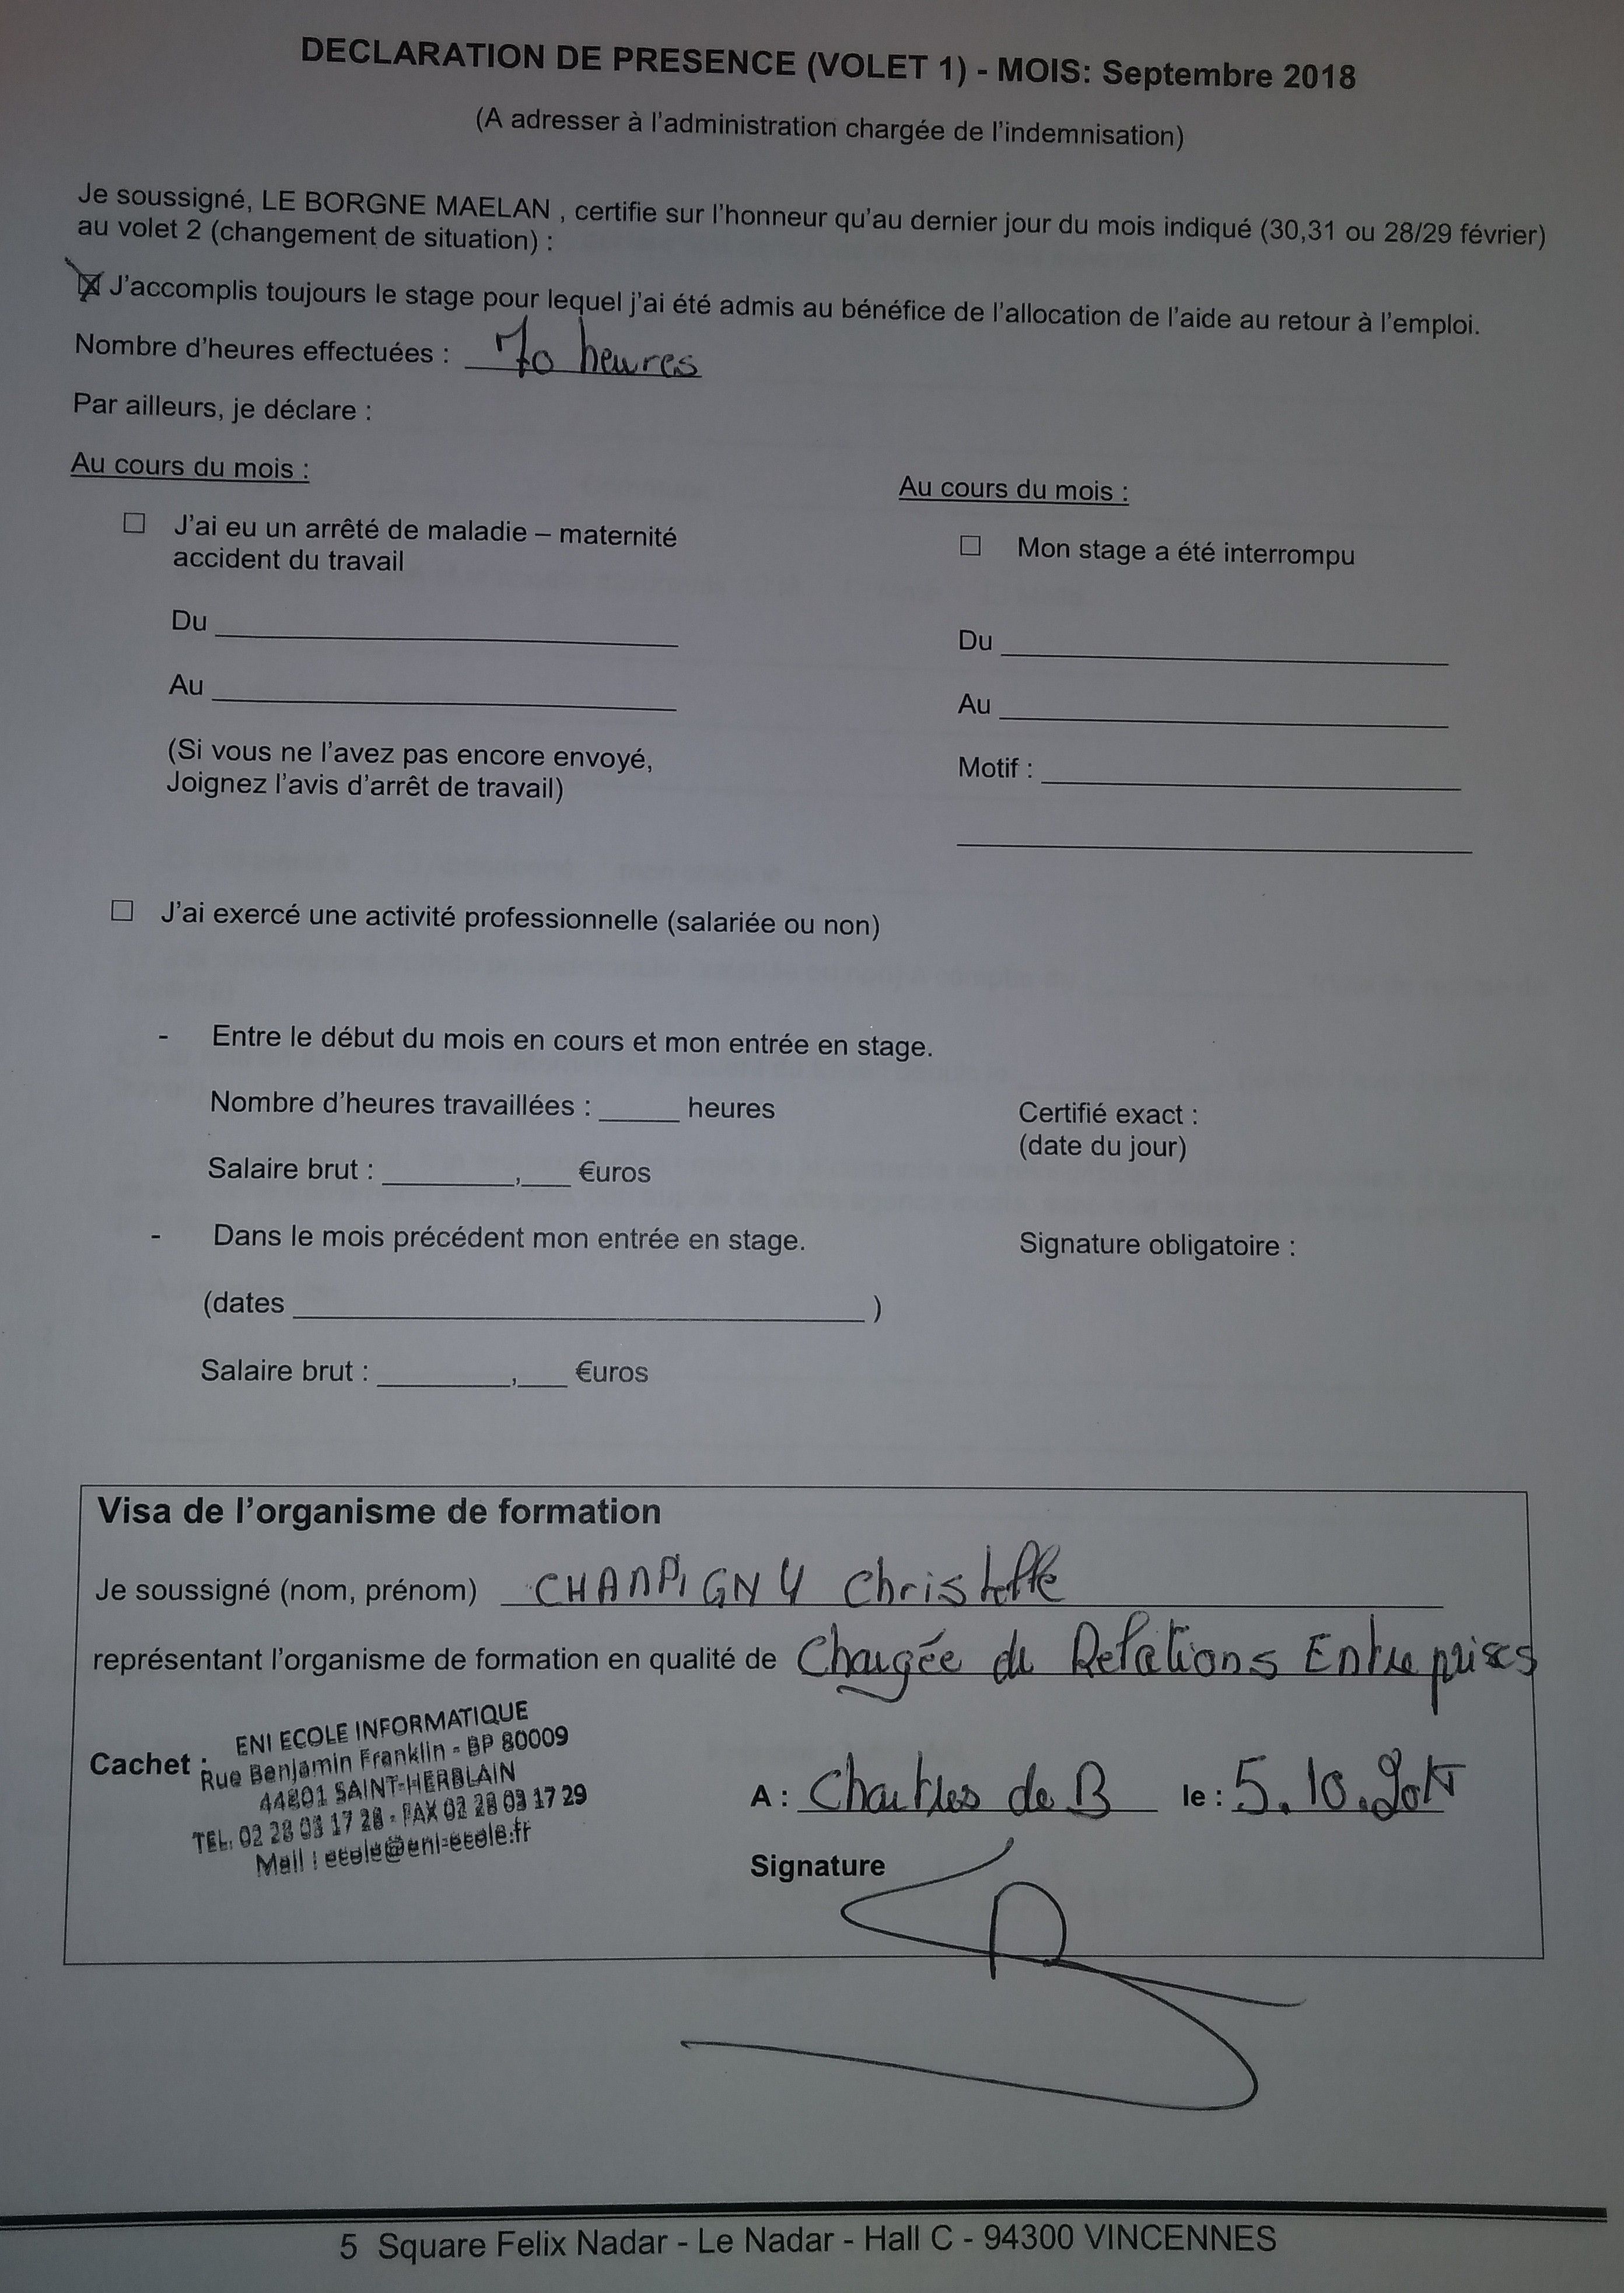 DECLARATION DE PRESENCE (VOLET 1) - MOIS: Septembre 2018
(A adresser à l'administration chargée de l'indemnisation)
Je soussigné, LE BORGNE MAELAN , certifie sur l'honneur qu'au dernier jour du mois indiqué (30,31 ou 28/29 février)
au volet 2 (changement de situation) :
J'accomplis toujours le stage pour lequel j'ai été admis au bénéfice de l'allocation de l'aide au retour à l'emploi.
Nombre d'heures effectuées : 70 heures
Par ailleurs, je déclare :
Au cours du mois :
☐ J'ai eu un arrêté de maladie – maternité
accident du travail
Du
Au
(Si vous ne l'avez pas encore envoyé,
Joignez l'avis d'arrêt de travail)
Au cours du mois :
☐ Mon stage a été interrompu
Du
Au
Motif :
☐ J'ai exercé une activité professionnelle (salariée ou non)
- Entre le début du mois en cours et mon entrée en stage.
Nombre d'heures travaillées : ______ heures
Salaire brut : ________,___ €uros
- Dans le mois précédent mon entrée en stage.
(dates ____________________ )
Salaire brut : ________,___ €uros
Certifié exact :
(date du jour)
Signature obligatoire :
Visa de l'organisme de formation
Je soussigné (nom, prénom) CHAMPIGNY Christelle
représentant l'organisme de formation en qualité de Chargée de Relations Entreprises
Cachet :
ENI ECOLE INFORMATIQUE
Rue Benjamin Franklin - BP 80009
44801 SAINT-HERBLAIN
TEL. 02 28 03 17 28 - FAX 02 28 03 17 29
Mail : ecole@eni-ecole.fr
A : de B le : 5.10.
Signature
5 Square Felix Nadar - Le Nadar - Hall C - 94300 VINCENNES